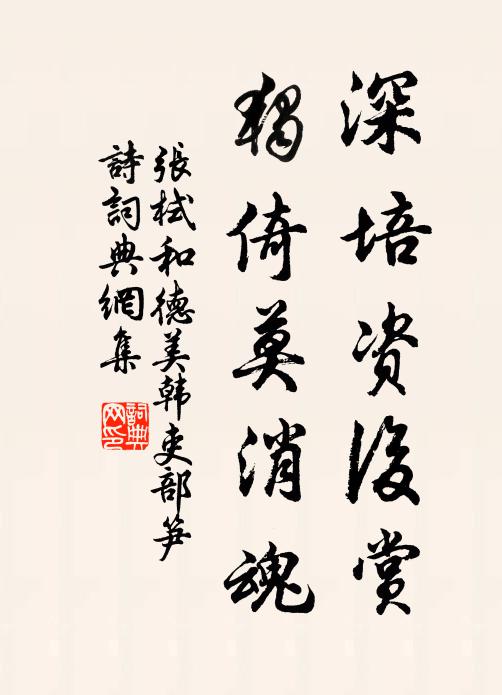 深培资後赏
獨倚莫消魂
張栻和德美韩吏部笋
詩詞典網集
詞典网印